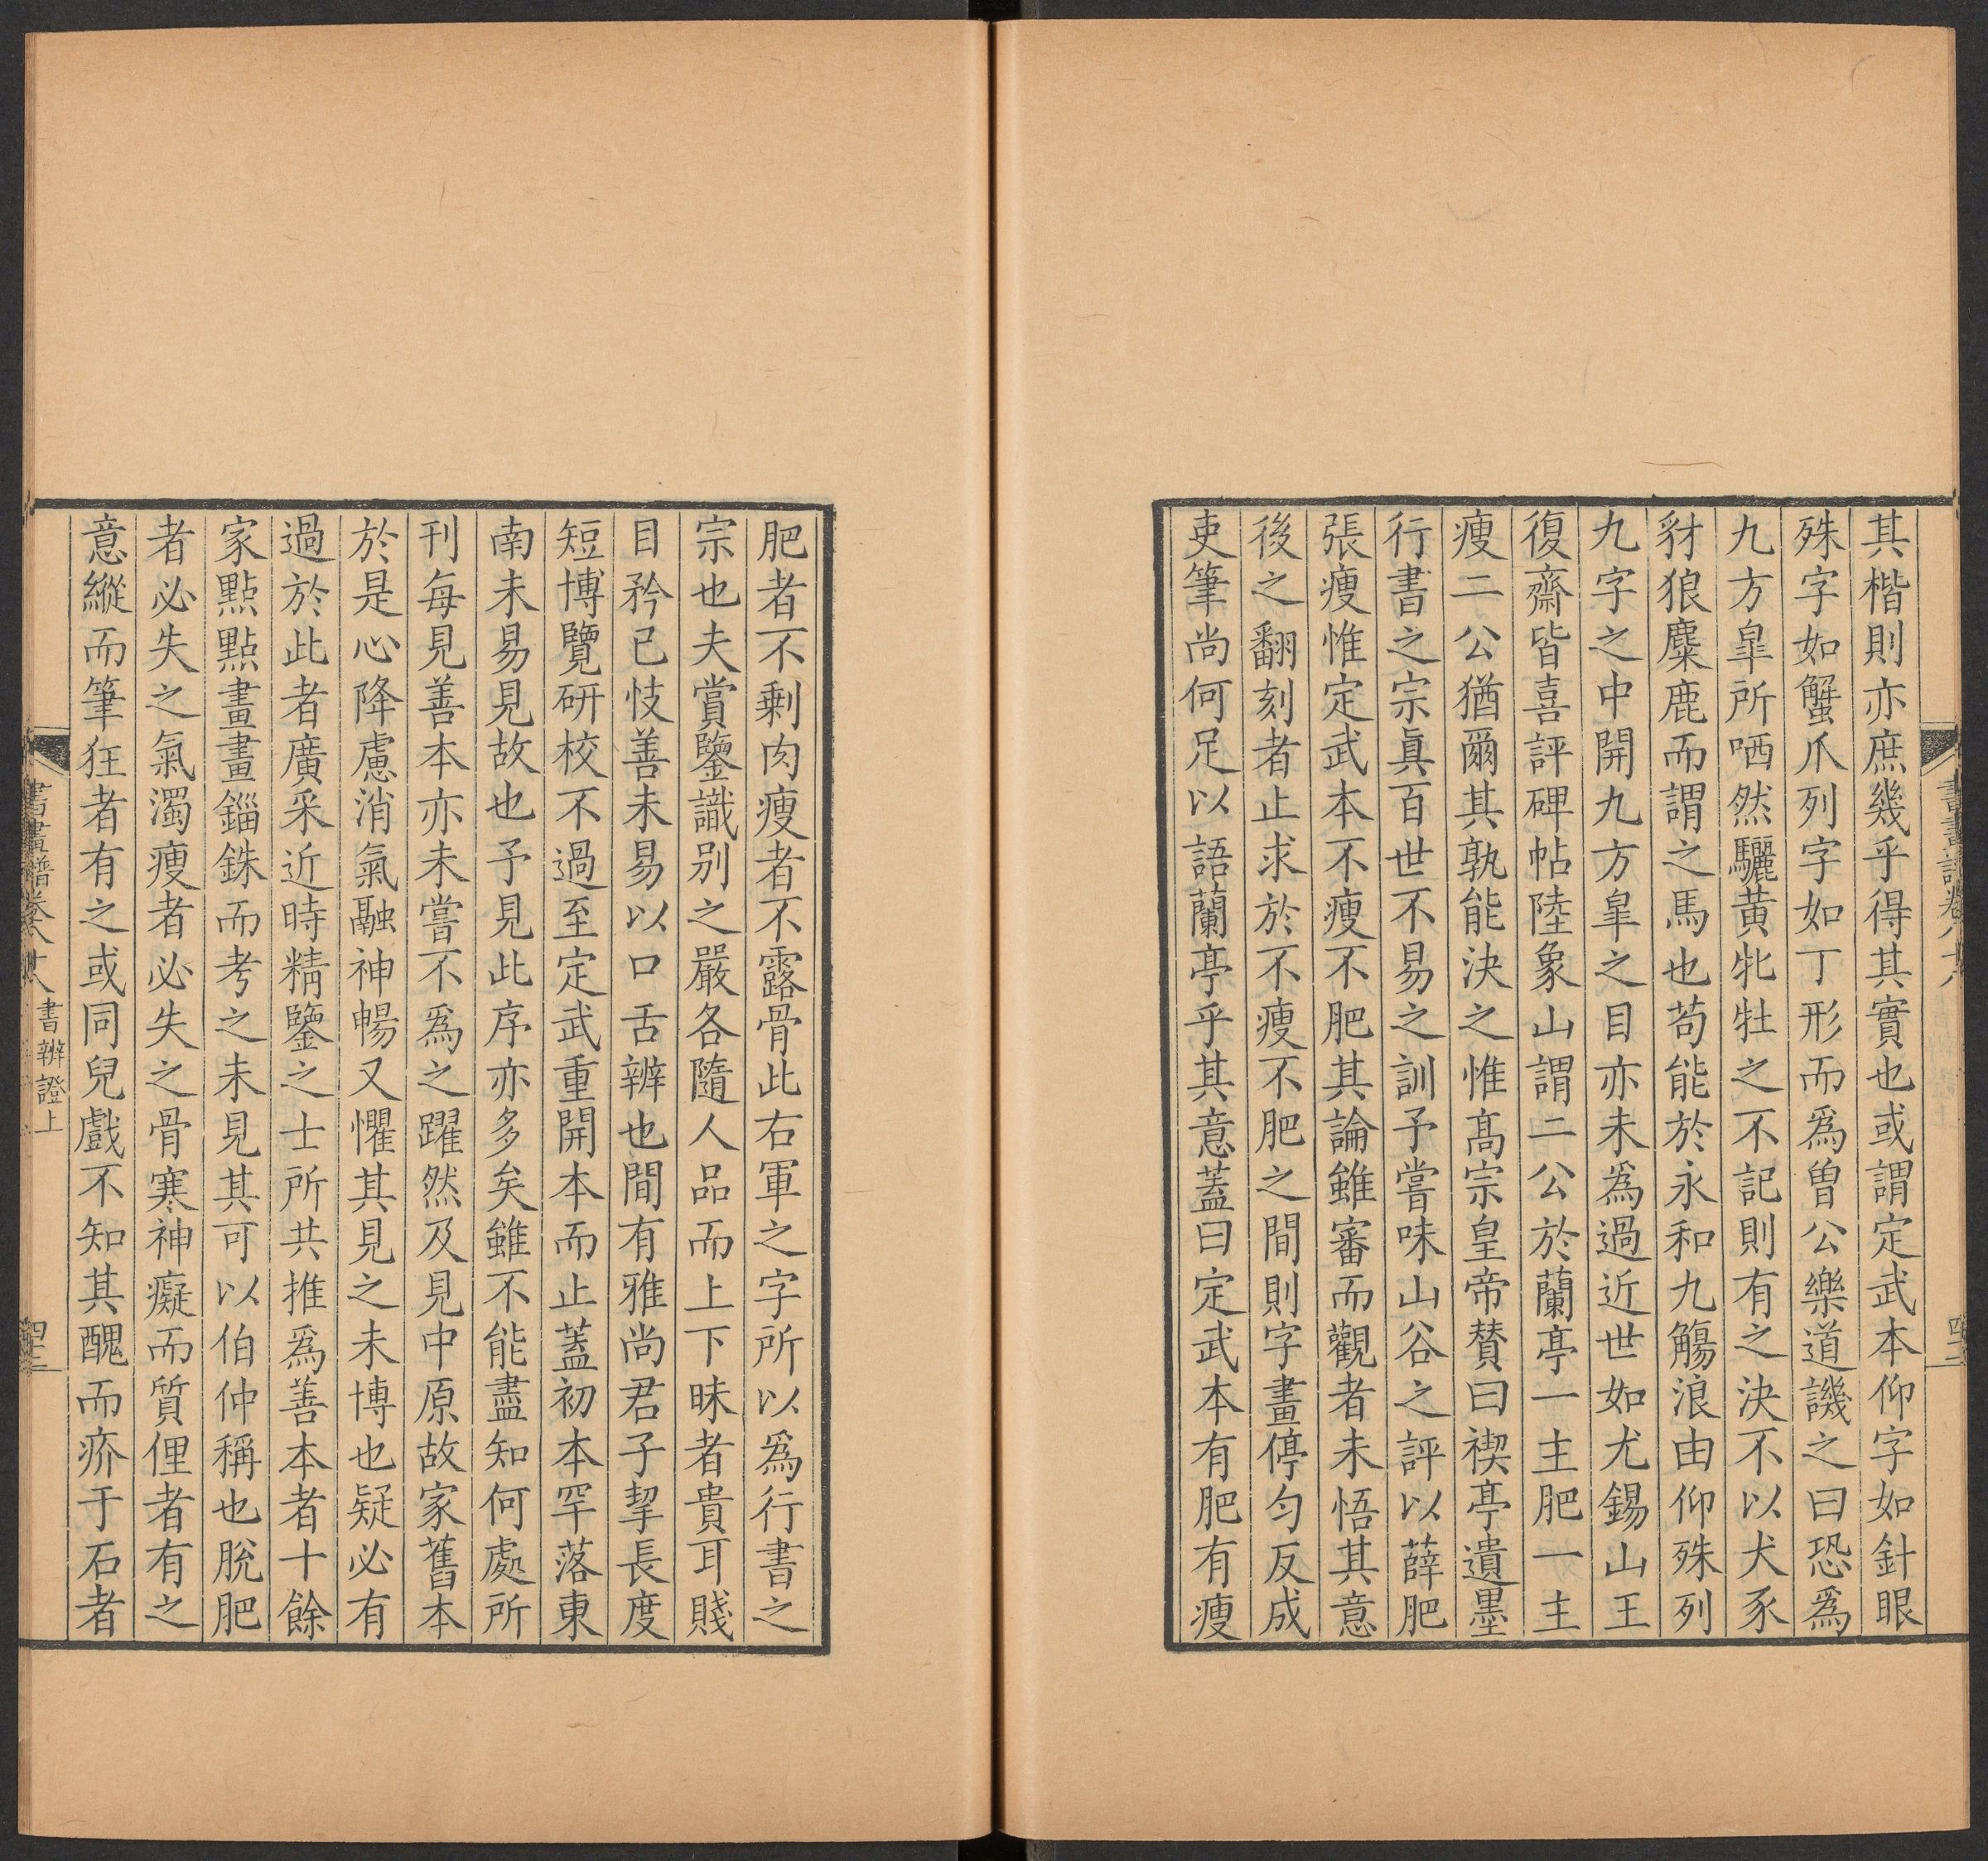 其楷則亦庶幾乎得其實也或謂定武本仰字如針眼
殊字如蟹爪列字如丁形而爲曾公樂道譏之曰恐爲
九方臯所哂然驪黄牝牡之不記則有之決不以犬豕
豺狼麋鹿而謂之馬也苟能於永和九觴浪由仰殊列
九字之中開九方臯之目亦未爲過近世如尤錫山王
復齋皆喜評碑帖陸象山謂二公於蘭亭一主肥一主
瘦二公猶爾其孰能決之惟髙宗皇帝賛曰禊亭遺墨
行書之宗真百世不易之訓予嘗味山谷之評以薛肥
張瘦惟定武本不瘦不肥其論雖審而觀者未悟其意
後之翻刻者止求於不瘦不肥之間則字畫停匀反成
吏筆尚何足以語蘭亭乎其意蓋曰定武本有肥有瘦
肥者不剩肉瘦者不露骨此右軍之字所以爲行書之
宗也夫賞鑒識别之嚴各隨人品而上下昧者貴耳賤
目矜已忮善未易以口舌辨也間有雅尚君子挈長度
短博覽研校不過至定武重開本而止蓋初本罕落東
南未易見故也予見此序亦多矣雖不能盡知何處所
刊每見善本亦未嘗不爲之躍然及見中原故家舊本
於是心降慮消氣融神暢又懼其見之未博也疑必有
過於此者廣采近時精鑒之士所共推爲善本者十餘
家點點畫畫錙銖而考之未見其可以伯仲稱也脫肥
者必失之氣濁瘦者必失之骨寒神癡而質俚者有之
意縱而筆狂者有之或同兒戲不知其醜而疥于石者
書畫譜卷八十八 書辨證上